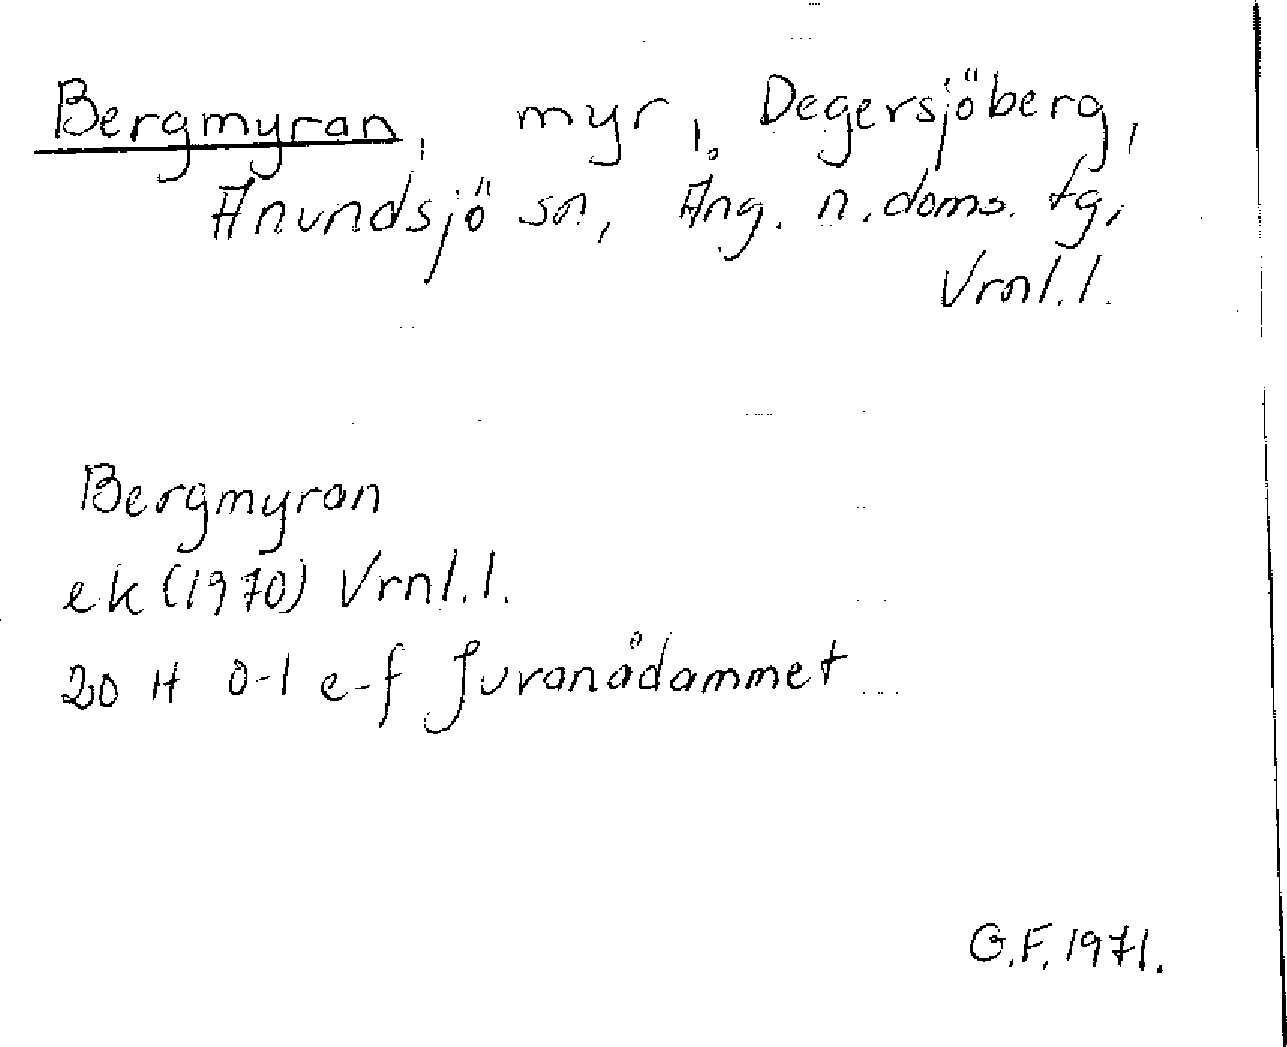 Bergmyran, myr, Degersjöberg,
Anundsjö sn, Ång. n. doms. tg,
Vrnl. l.
Bergmyran
ek (1970) Vrnl. l.
20 H 0-1 e-f Juvanådammet
G.F. 1971.